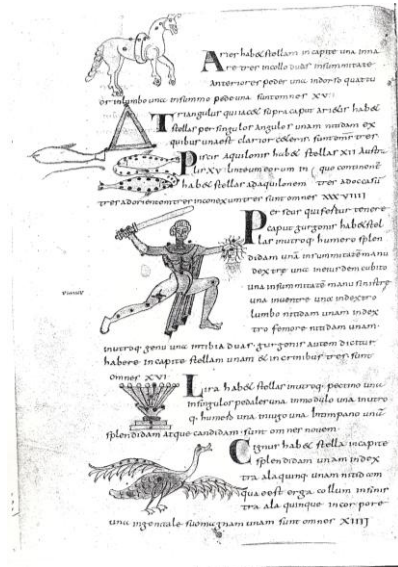 Aries hab& stellam in capite una in na
re tres in collo duas in summitate
anterioris pedis una in dorso quattu
or in lumbo una in summo pede una sunt omnes XVII
Triangulus qui iac& supra caput arietis hab&
stellas per singulos angulos unam nitidam ex
quibus una est clarior ceteris sunt omnes tres
Piscis aquilonis hab& stellas XII Austri
XV linteum eorum in quo
hab& stellas ad aquilonem tres ad occasū
tres ad orientem tres in conexum tres sunt omnes XXXVIIII
Perseus qui fostur tenere
caput gurgonis hab& stel
las in utroq· humero splen
didam unā in summitatē manu
dextre una in eiusdem cubito
una in summitatē manu sinistre
una in ventre una in dextro
lumbo nitidam unam in dex
tro femore nitidam unam·
in utroq· genu una in tibia duas· gurgonis autem dicitur
habere in capite stellam unam & in crinibus tres sunt
omnes XVI
Lira hab& stellas in utroq· pectine una
in singulos una in una in utro
q· humero una in iugo una In timpano unā
splendidam atque candidam· sunt omnes novem·
Cignus hab& stella in capite
splendidam unam in dex
tra ala quinq· unam nitid com
qua est erga collum in sinis
tra ala quinque in corpore
una unam sunt omnes XIIII